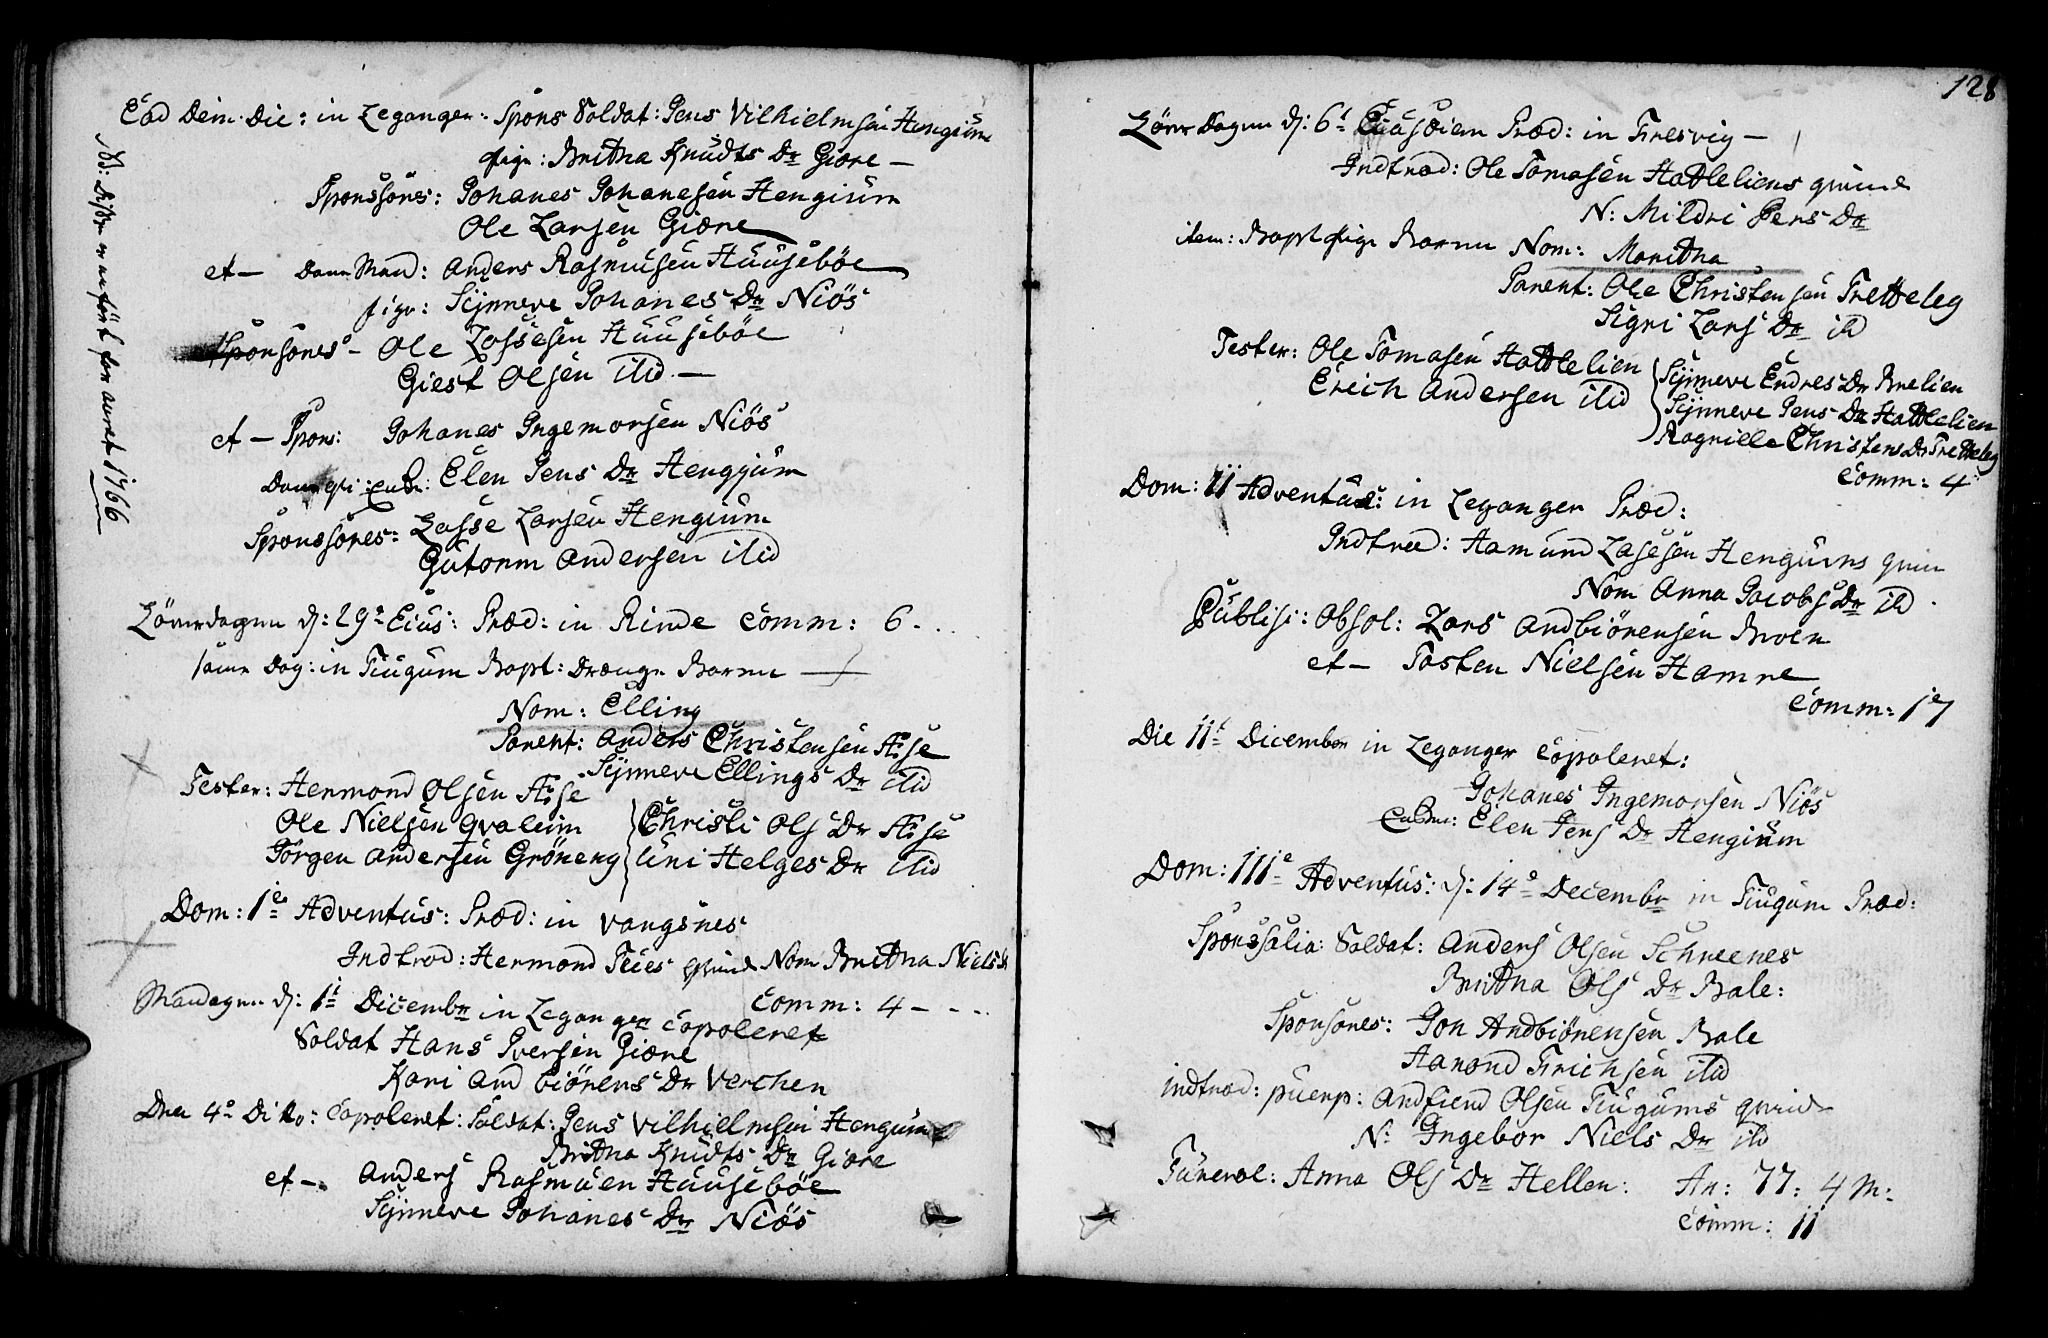 Ead Dem. Die: in Leganger. Spons Soldat: Jens Vilhielmsen Hengium
pige: Brittha Knudts Dr Giære —
Sponssores: Johanes Johanesen Hengium
Ole Larsen Giære
et — Dann Mand: Anders Rasmusen Huusebøe
pige: Synneve Johanes Dr Niøs
Sponsores — Ole Lassesen Huusebøe
Giest Olsen ibid. —
et — Spons: Johanes Ingemorsen Niøs
Elen Jens Dr Hengjum
Sponssores: Lasse Larsen Hengium
Gutorm Andersen ibid
NB: for aaret 1766
Løverdagen d: 29e Eius: Præd: in Rinde Comm: 6 - . .
samme Dag: in Tiugum Bapt: Drænge Barnn —
Nom: Elling
Parent: Anders Christensen Aase
Synneve Ellings Dr ibid
Tester: Hermond Olsen Aase
Ole Nielsen Qvaleim
Jørgen Andersen Grøneng
Christi Ols Dr Aase
Uni Helges Dr ibid
Dom: 1e Adventus: Præd: in Vangsnes
Indtrod: Hermond Teies qvinde Nom Brittha Niels Dr
Comm: 4 - - - . .
Mandagen d: 1t Dicembr in Leganger Copoleret
Soldat Hans Iversen Giære
Kari Andbiørens Dr Verchen
Den 4e Ditto: Copoleret: Soldat: Jens Vilhielmsen Hengium
Brittha Knudts Dr Giære
et — Anders Rasmusen Huusebøe
Synneve Johanes Dr Niøs
128
Løver Dagen d: 6t Eiusdem Præd: in Fresvig —
Indtrod: Ole Tomasen Hatteliens qvinde
N: Mildri Pers Dr
item: Bapt pige Barnn Nom: Maritha
Parent: Ole Christensen Tretteteg
Sigri Lars Dr ibd
Tester: Ole Tomasen Hattelien
Erich Andersen ibid
Synneve Endres Dr Brelien
Synneve Jens Dr Hattelien
Ragnille Christens Dr Tretteteg
Comm: 4
Dom: II Adventus: in Leganger Præd:
Indtrod: Aamund Lasesen Hengums qvin
Nom Anna Jacobs Dr ibd.
Publice: Absol: Lars Andbiørensen Broen
et — Tosten Nielsen Hamre
Comm: 17
Die 11t Dicember in Leganger Copoleret:
Johanes Ingemorsen Niøs
Elen Jens Dr Hengium
Dom: IIIe Adventus: d: 14e Decembr in Tiugum Præd:
Sponssalia: Soldat: Anders Olsen Schreenes
Brittha Ols Dr Bale:
Sponsores: Jon Andbiørensen Bale
Aamond Erichsen ibid
indtrod: puerp: Andfiend Olsen Tiugums qvinde
N: Ingebor Niels Dr ibd
Funeral: Anna Ols Dr Hellen: An: 77: 4 M:
Comm: 11